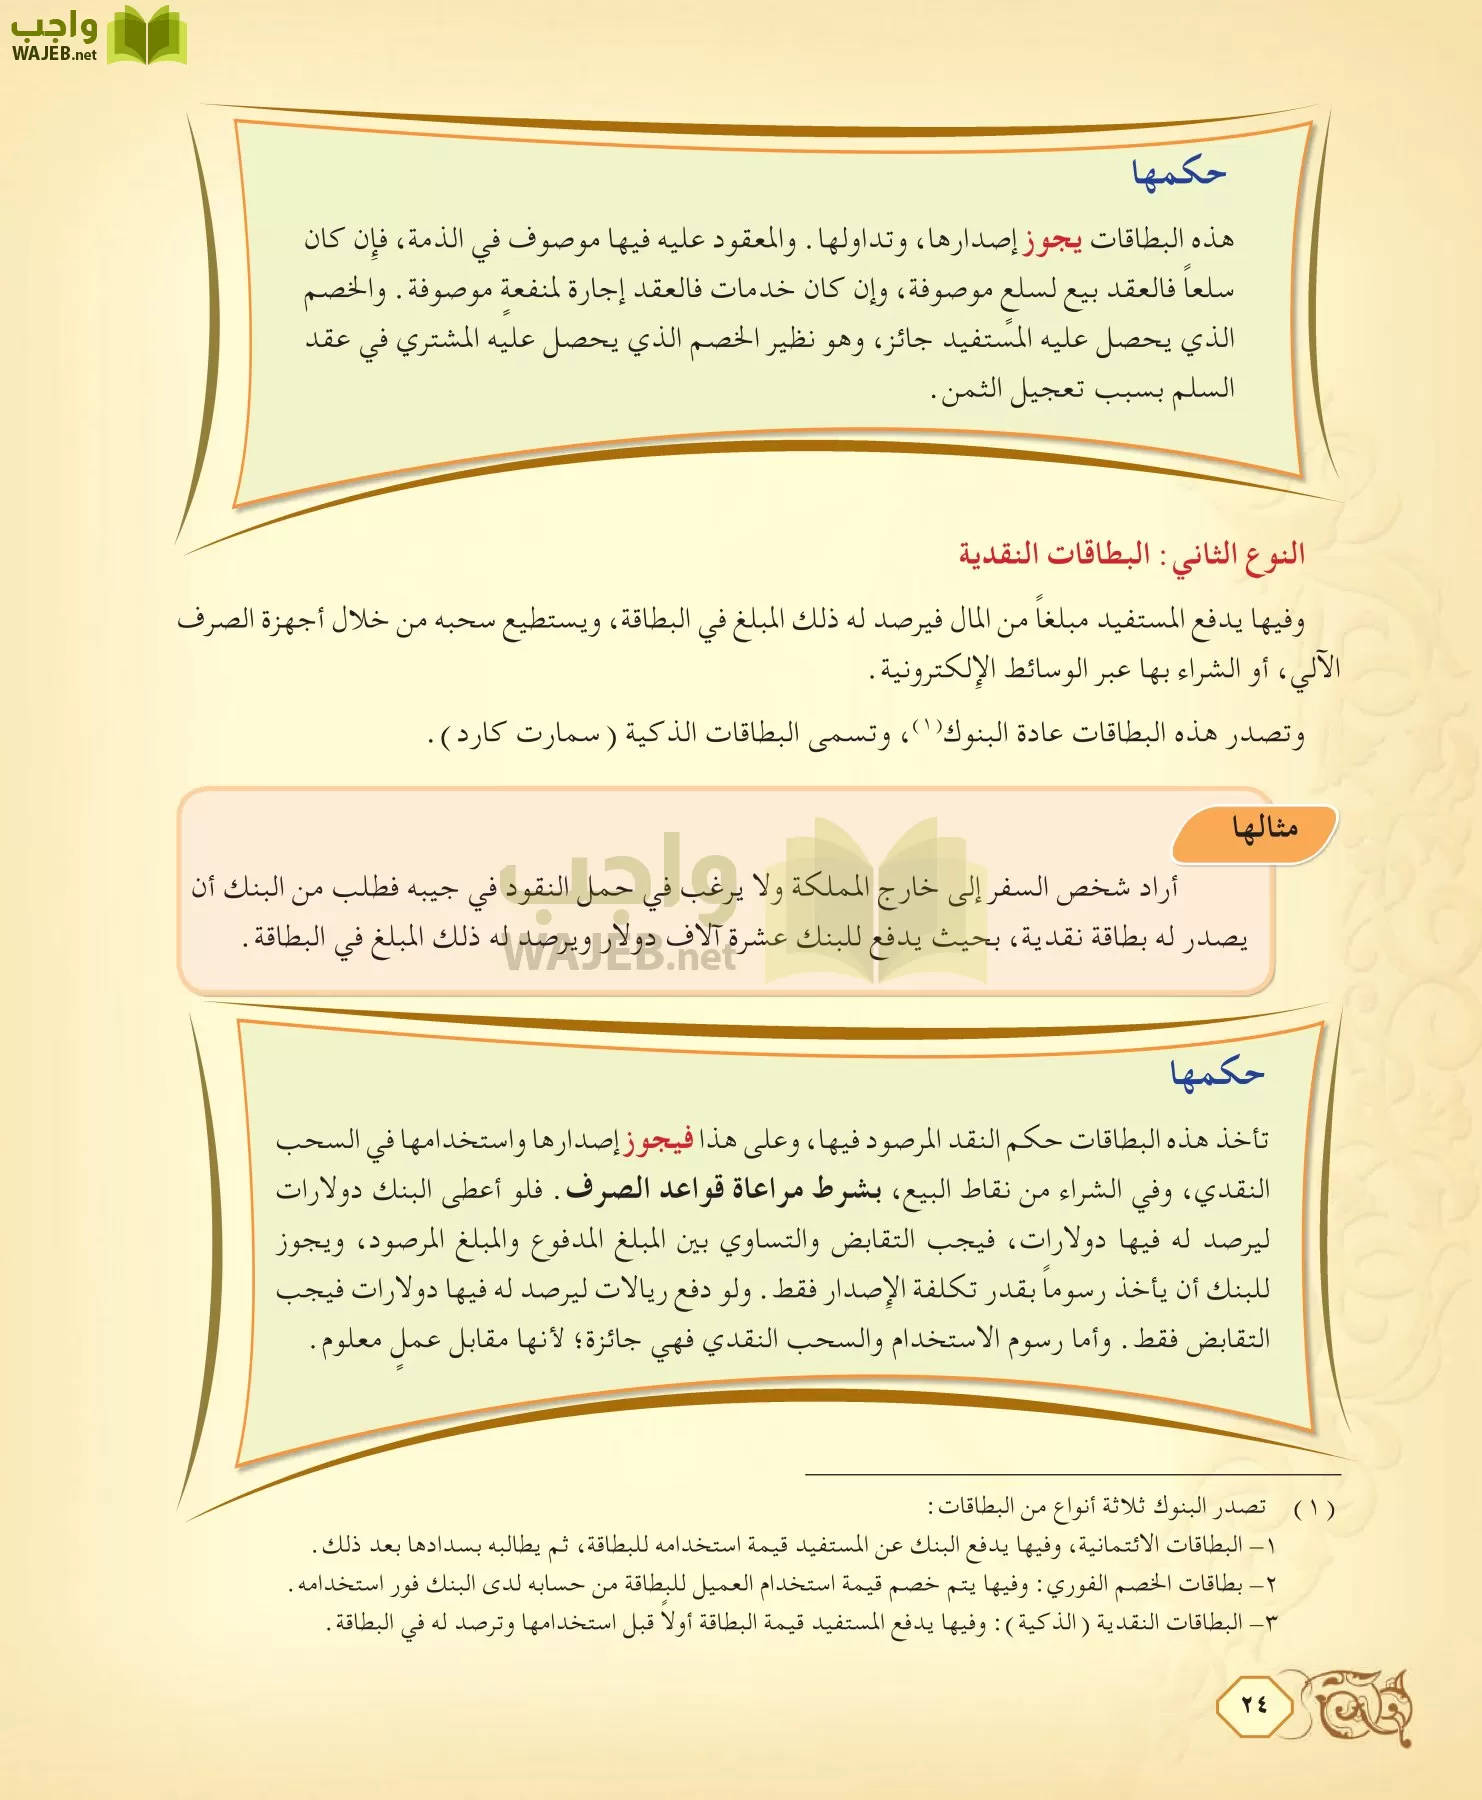 واجب
WAJEB.net
حكمها
هذه البطاقات يجوز إصدارها، وتداولها. والمعقود عليه فيها موصوف في الذمة، فإن كان
سلعاً فالعقد بيع لسلعٍ موصوفة، وإن كان خدمات فالعقد إجارة لمنفعةٍ موصوفة. والخصم
الذي يحصل عليه المستفيد جائز، وهو نظير الخصم الذي يحصل عليه المشتري في عقد
السلم بسبب تعجيل الثمن.
النوع الثاني: البطاقات النقدية
وفيها يدفع المستفيد مبلغاً من المال فيرصد له ذلك المبلغ في البطاقة، ويستطيع سحبه من خلال أجهزة الصرف
الآلي، أو الشراء بها عبر الوسائط الإلكترونية.
وتصدر هذه البطاقات عادة البنوك(١)، وتسمى البطاقات الذكية (سمارت كارد).
مثالها
أراد شخص السفر إلى خارج المملكة ولا يرغب في حمل النقود في جيبه فطلب من البنك أن
يصدر له بطاقة نقدية، بحيث يدفع للبنك عشرة آلاف دولار ويرصد له ذلك المبلغ في البطاقة.
واجب
WAJEB.net
حكمها
تأخذ هذه البطاقات حكم النقد المرصود فيها، وعلى هذا فيجوز إصدارها واستخدامها في السحب
النقدي، وفي الشراء من نقاط البيع، بشرط مراعاة قواعد الصرف. فلو أعطى البنك دولارات
ليرصد له فيها دولارات، فيجب التقابض والتساوي بين المبلغ المدفوع والمبلغ المرصود، ويجوز
للبنك أن يأخذ رسوماً بقدر تكلفة الإصدار فقط. ولو دفع ريالات ليرصد له فيها دولارات فيجب
التقابض فقط. وأما رسوم الاستخدام والسحب النقدي فهي جائزة؛ لأنها مقابل عملٍ معلوم.
(١) تصدر البنوك ثلاثة أنواع من البطاقات:
١- البطاقات الائتمانية، وفيها يدفع البنك عن المستفيد قيمة استخدامه للبطاقة، ثم يطالبه بسدادها بعد ذلك.
٢- بطاقات الخصم الفوري: وفيها يتم خصم قيمة استخدام العميل للبطاقة من حسابه لدى البنك فور استخدامه.
٣- البطاقات النقدية (الذكية): وفيها يدفع المستفيد قيمة البطاقة أولاً قبل استخدامها وترصد له في البطاقة.
٢٤